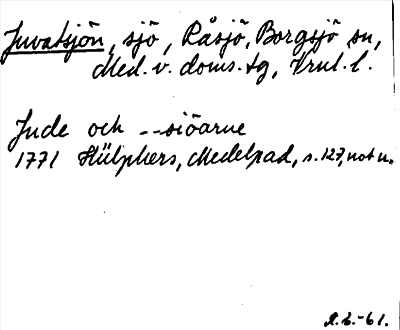 Juvatsjön, sjö, Råsjö, Borgsjö sn,
Med. v. doms. tg, Vrnl. l.
Jude och --siöarne
1771 Hülphers, Medelpad, s. 127, not u.
-61.